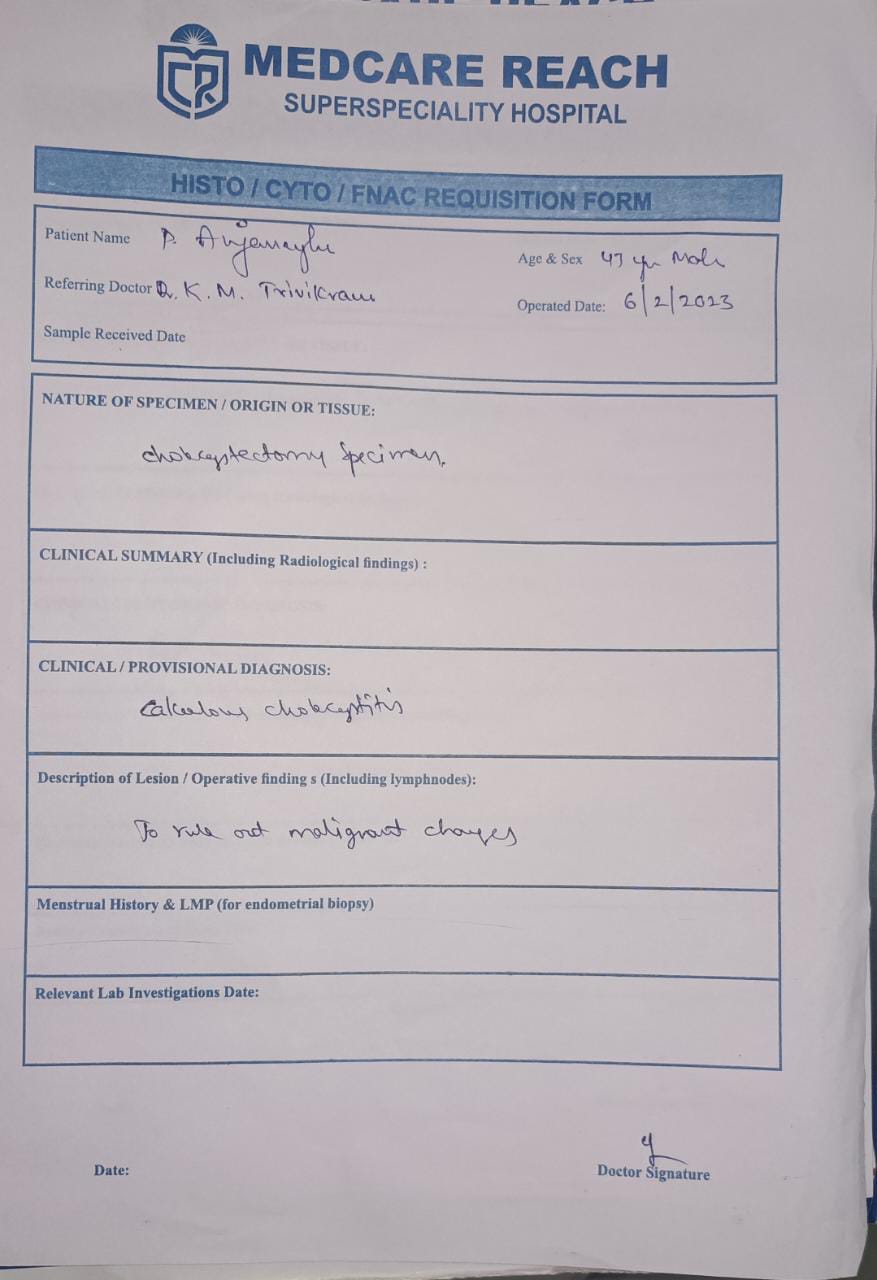 MEDCARE REACH
SUPERSPECIALITY HOSPITAL
HISTO / CYTO / FNAC REQUISITION FORM
Patient Name P. Anjaneyulu
Age & Sex 47 yr Male
Referring Doctor Dr. K. M. Trivikram
Operated Date: 6/2/2023
Sample Received Date
NATURE OF SPECIMEN / ORIGIN OR TISSUE:
cholecystectomy Specimen.
CLINICAL SUMMARY (Including Radiological findings) :
CLINICAL / PROVISIONAL DIAGNOSIS:
Calculous cholecystitis
Description of Lesion / Operative finding s (Including lymphnodes):
To rule out malignant changes
Menstrual History & LMP (for endometrial biopsy)
Relevant Lab Investigations Date:
Date:
Doctor Signature